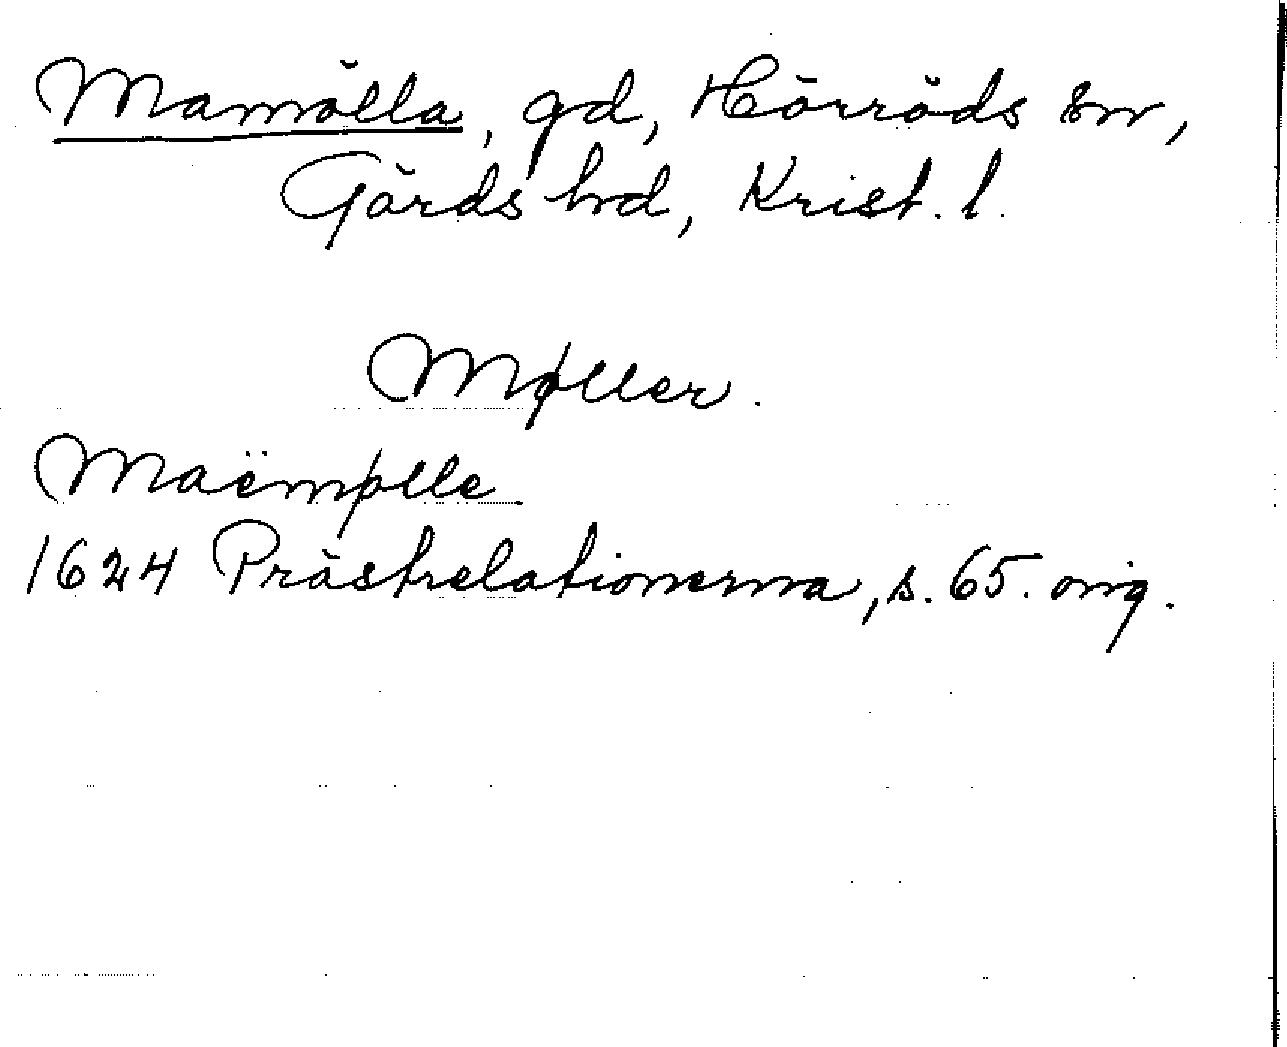 Mamölla, gd, Hörröds sn,
Gärds hd, Krist. l.
Møller.
Maëmølle
1624 Prästrelationerna, s. 65. orig.